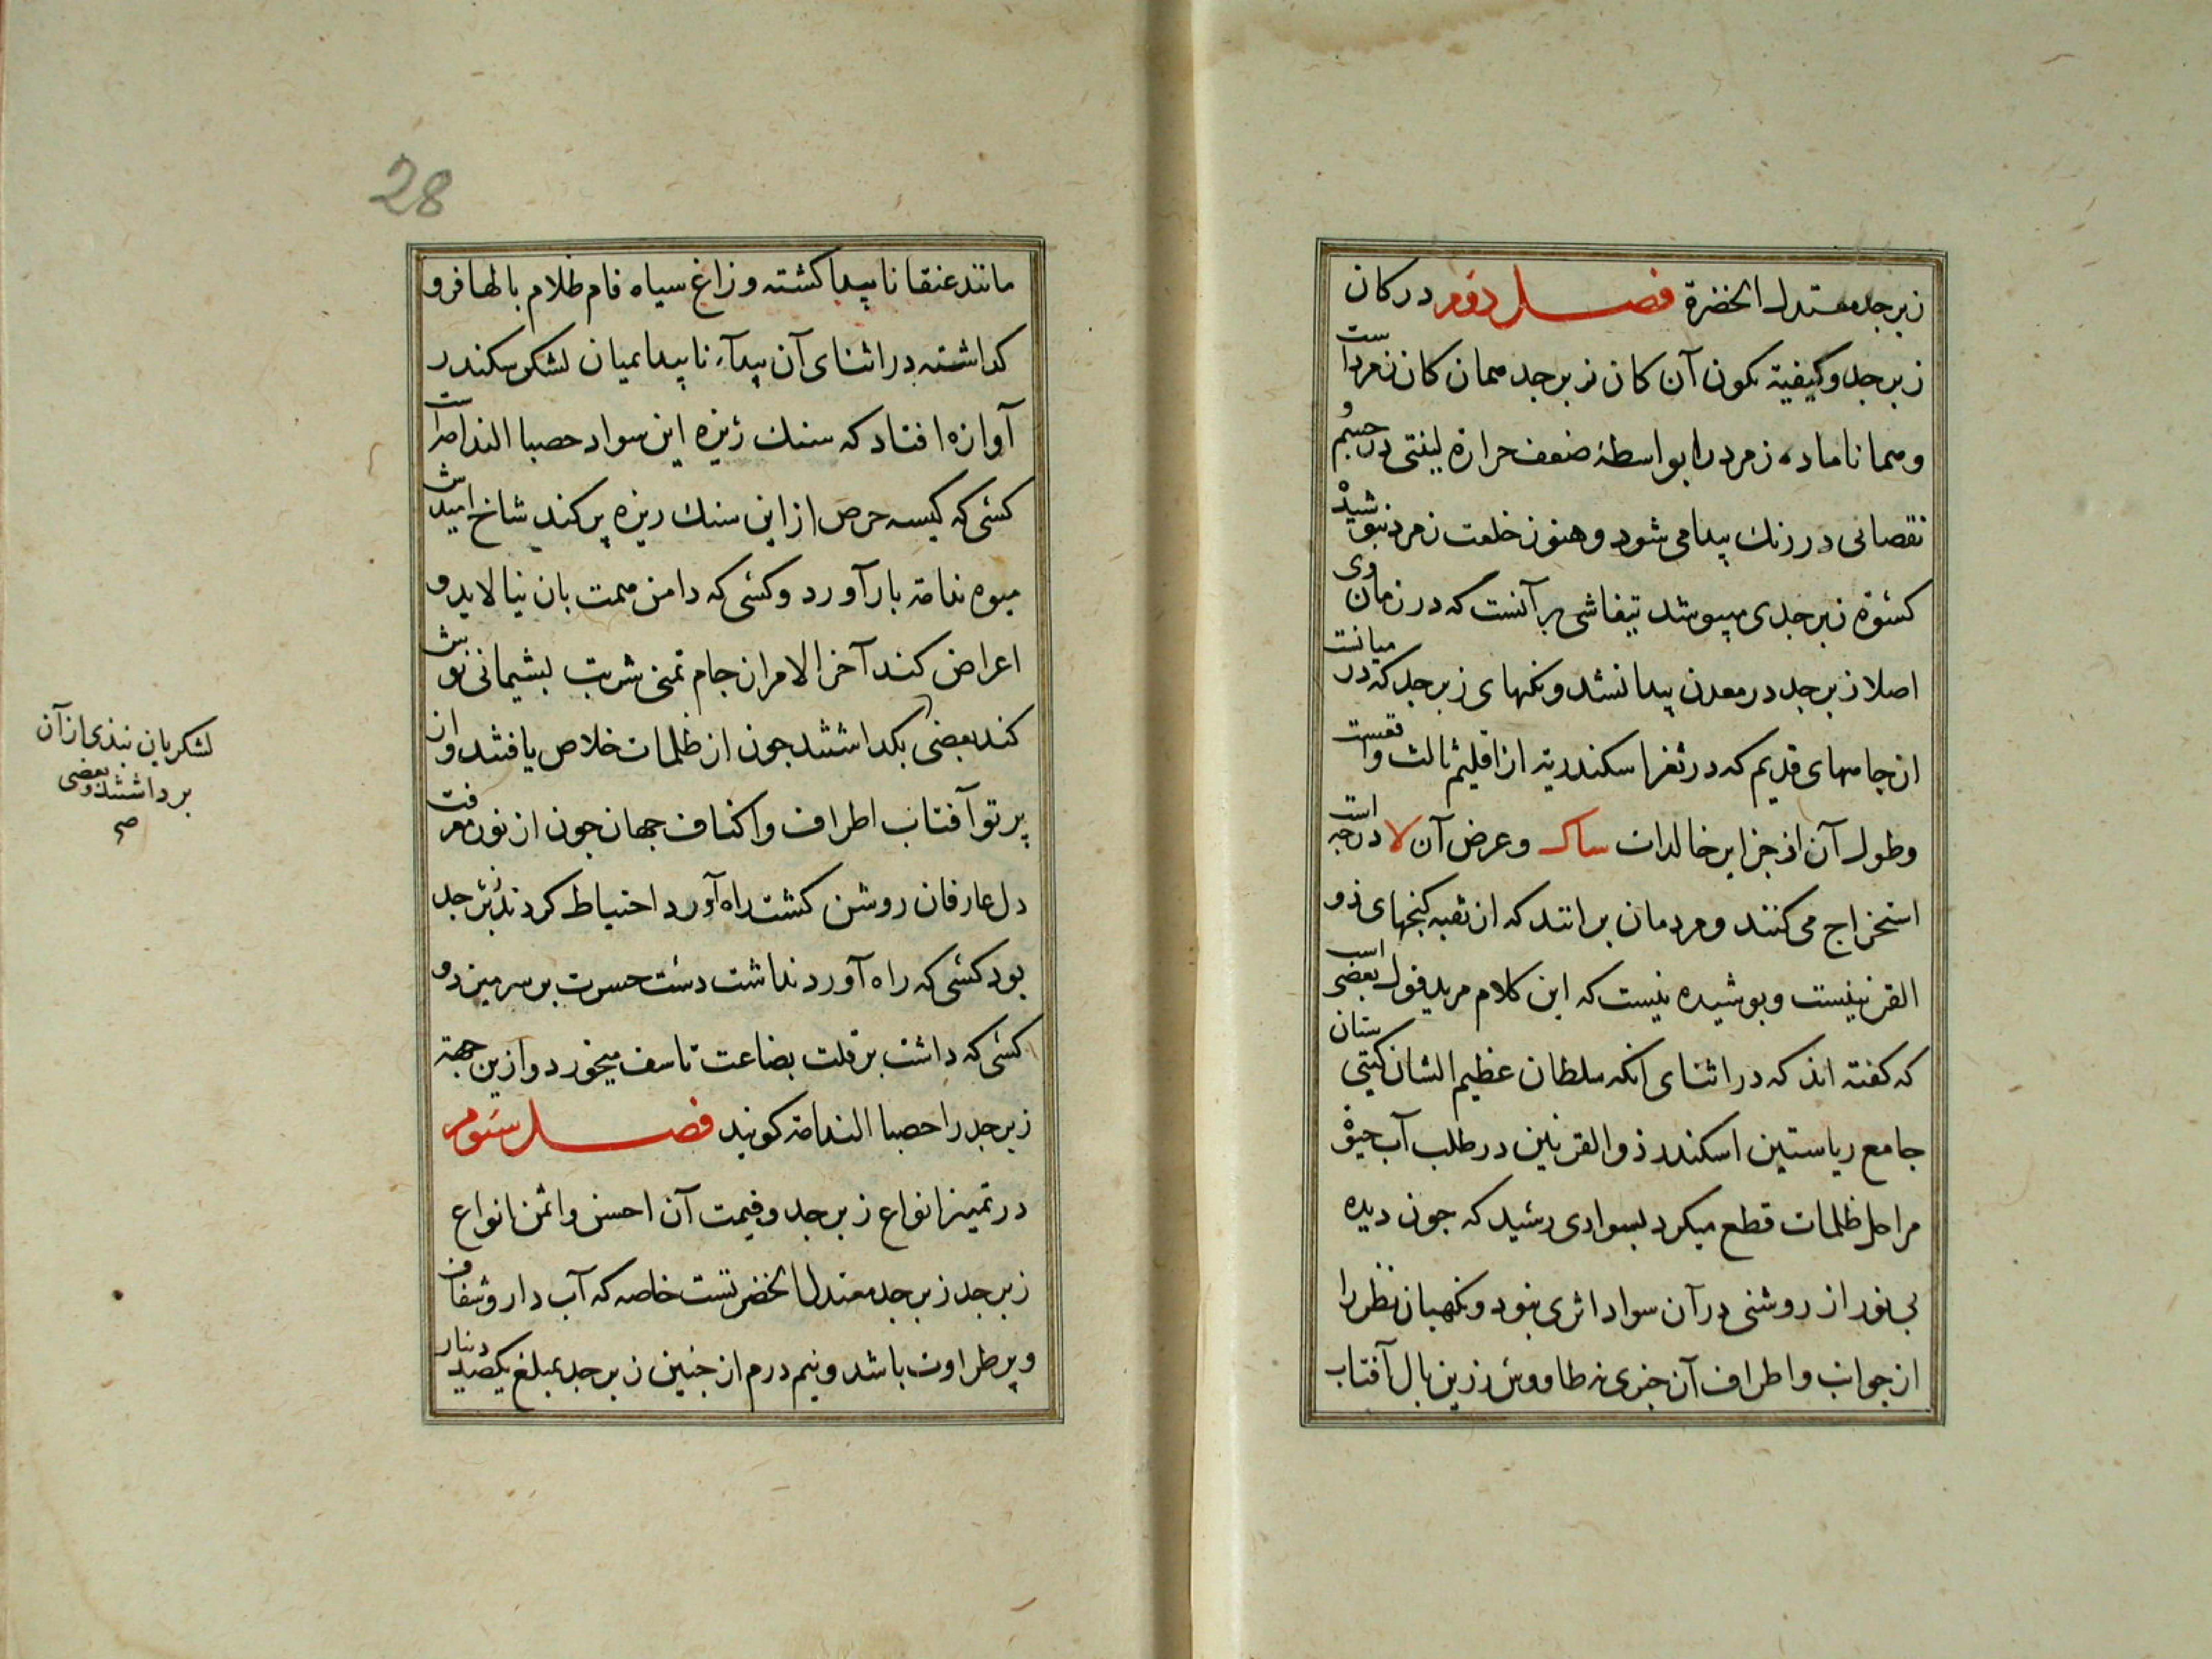 زبرجد معتدل الخضرة فصل دوم در کان
زبرجد و کیفیة تکون آن کان زبرجد همان کان زمرداست
و همانا ماده زمرد را بواسطهٔ ضعف حرارة لینتی در جسم و
نقصانی در رنك پیدا می شود و هنوز خلعت زمرد نپوشیده
کسوة زبرجدی میپوشد تیفاشی بر آنست که در زمان وی
اصلا زبرجد در معدن پیدا نشد ونکهای زبرجد که در میانست
از جامهای قدیم که در ثغر اسکندریه از اقلیم ثالث واقعست
وطول آن از جزایر خالدات ساك وعرض آن لا درجه است
استخراج می کنند و مردمان برانند که از نقبه کنجهای ذو
القرنینست وپوشیده نیست که این کلام مرید قول بعضی است
که کفته اند که در اثنای آنکه سلطان عظیم الشان کیتی ستان
جامع ریاستین اسکندر ذو القرنین در طلب آب حیوة
مراحل ظلمات قطع میکرد بسوادی رسید که جون دیده
بی نور از روشنی در آن سواد اثری نبود ونکهبان نظر را
از جوانب واطراف آن خبری نه طاووس زرین بال آفتاب
28
مانند عنقا ناپیدا کشته و زاغ سیاه فام ظلام بالها فرو
کذاشته در اثنای آن پیدآء ناپیدا میان لشکر سکندر
آوازه افتاد که سنك ریزه این سواد حصبا الندامة است
کسی که کیسه حرص از این سنك ریزه پر کند شاخ امیدش
میوه ندامة بار آورد وکسی که دامن همت بان نیالاید و
اعراض کند آخر الامر از جام تمنی شربت پشیمانی نوش
کند بعضی بکذاشتند جون از ظلمات خلاص یافتند واز
لشکریان نبذی از آن
برداشتند وبعضی
صح
پرتو آفتاب اطراف واکناف جهان جون از نور معرفت
دل عارفان روشن کشت راه آورد احتیاط کردند زبرجد
بود کسی که راه آورد نداشت دست حسرت بر سر میزد و
کسی که داشت بر قلت بضاعت تاسف میخورد و ازین جهة
زبرجد را حصبا الندامة کویند فصل سوم
در تمییز انواع زبرجد وقیمت آن احسن واثمن انواع
زبرجد زبرجد معتدل الخضرتست خاصه که آب دار وشفاف
وپر طراوت باشد ونیم درم از جنین زبرجد بمبلغ یکصد دینار